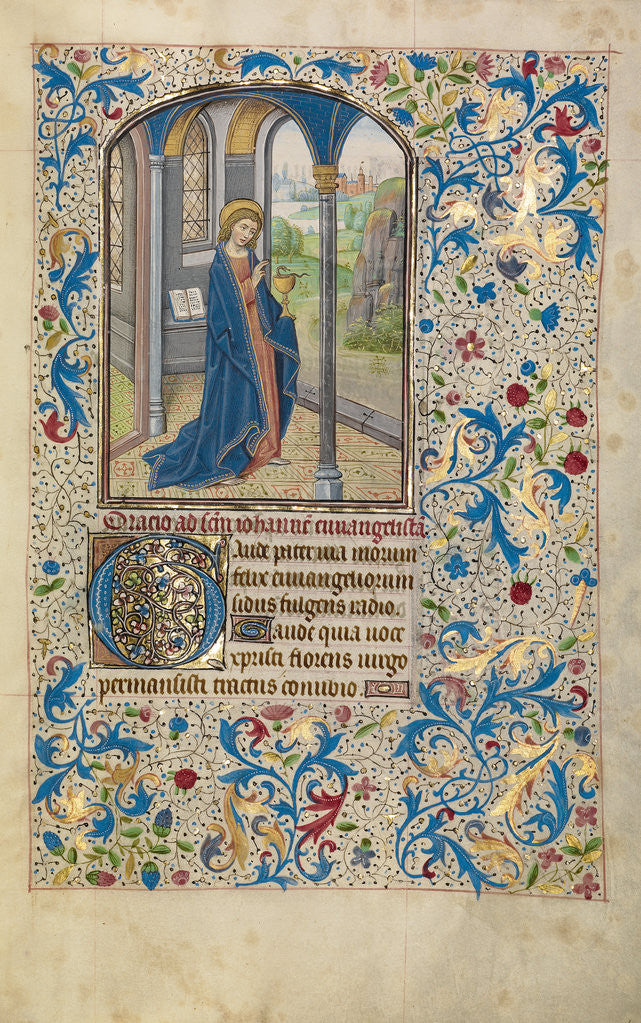 Oracio ad scm iohanne euuangelistā
Gaude pater via morum
felix euuangeliorum
sidus fulgens radio
Gaude quia uoce
xpristi florens uirgo
permansisti tractus conubio.